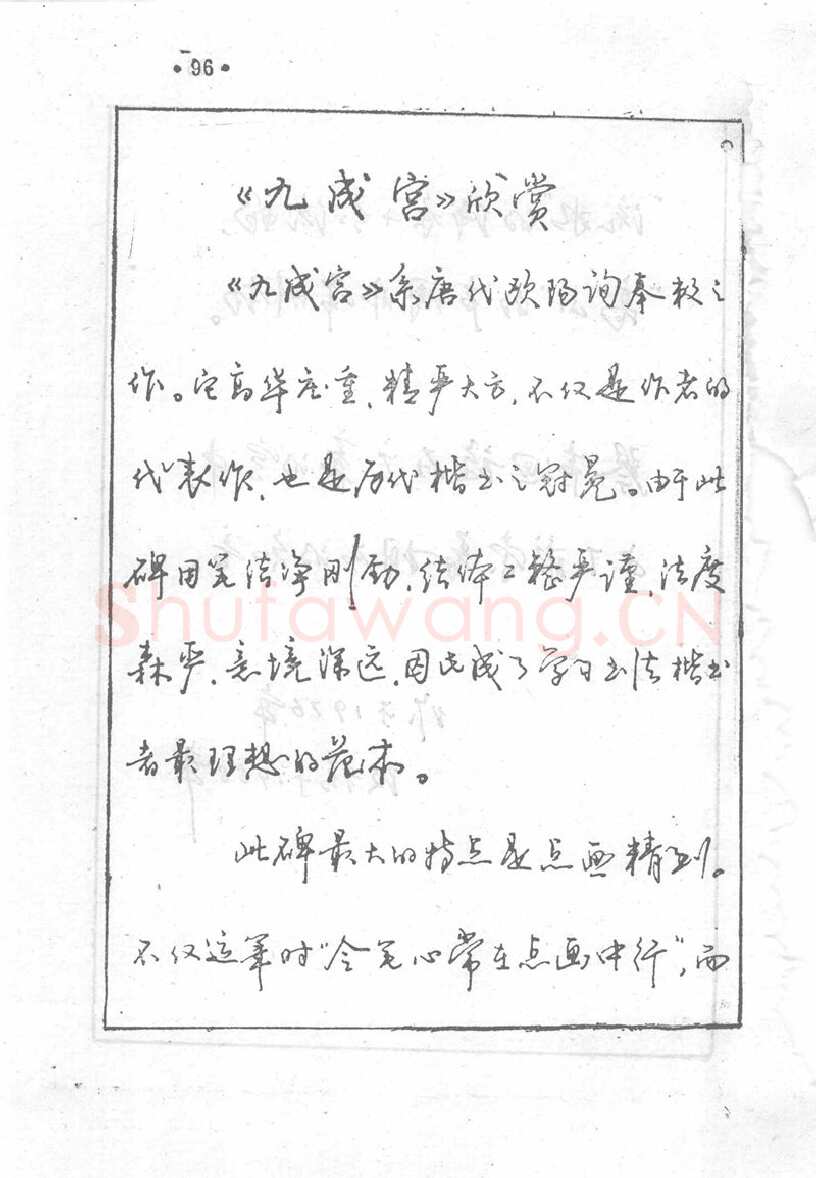 ·96·
《九成宫》欣赏
《九成宫》系唐代欧阳询奉敕之
作。它高华庄重，精严大方，不仅是作者的
代表作，也是历代楷书之冠冕。由于此
碑用笔洁净刚劲，结体工整严谨，法度
Shufawang.CN
森严，意境深远，因此成了学习书法楷书
者最理想的范本。
此碑最大的特点是点画精到。
不仅运笔时“令笔心常在点画中行”，而